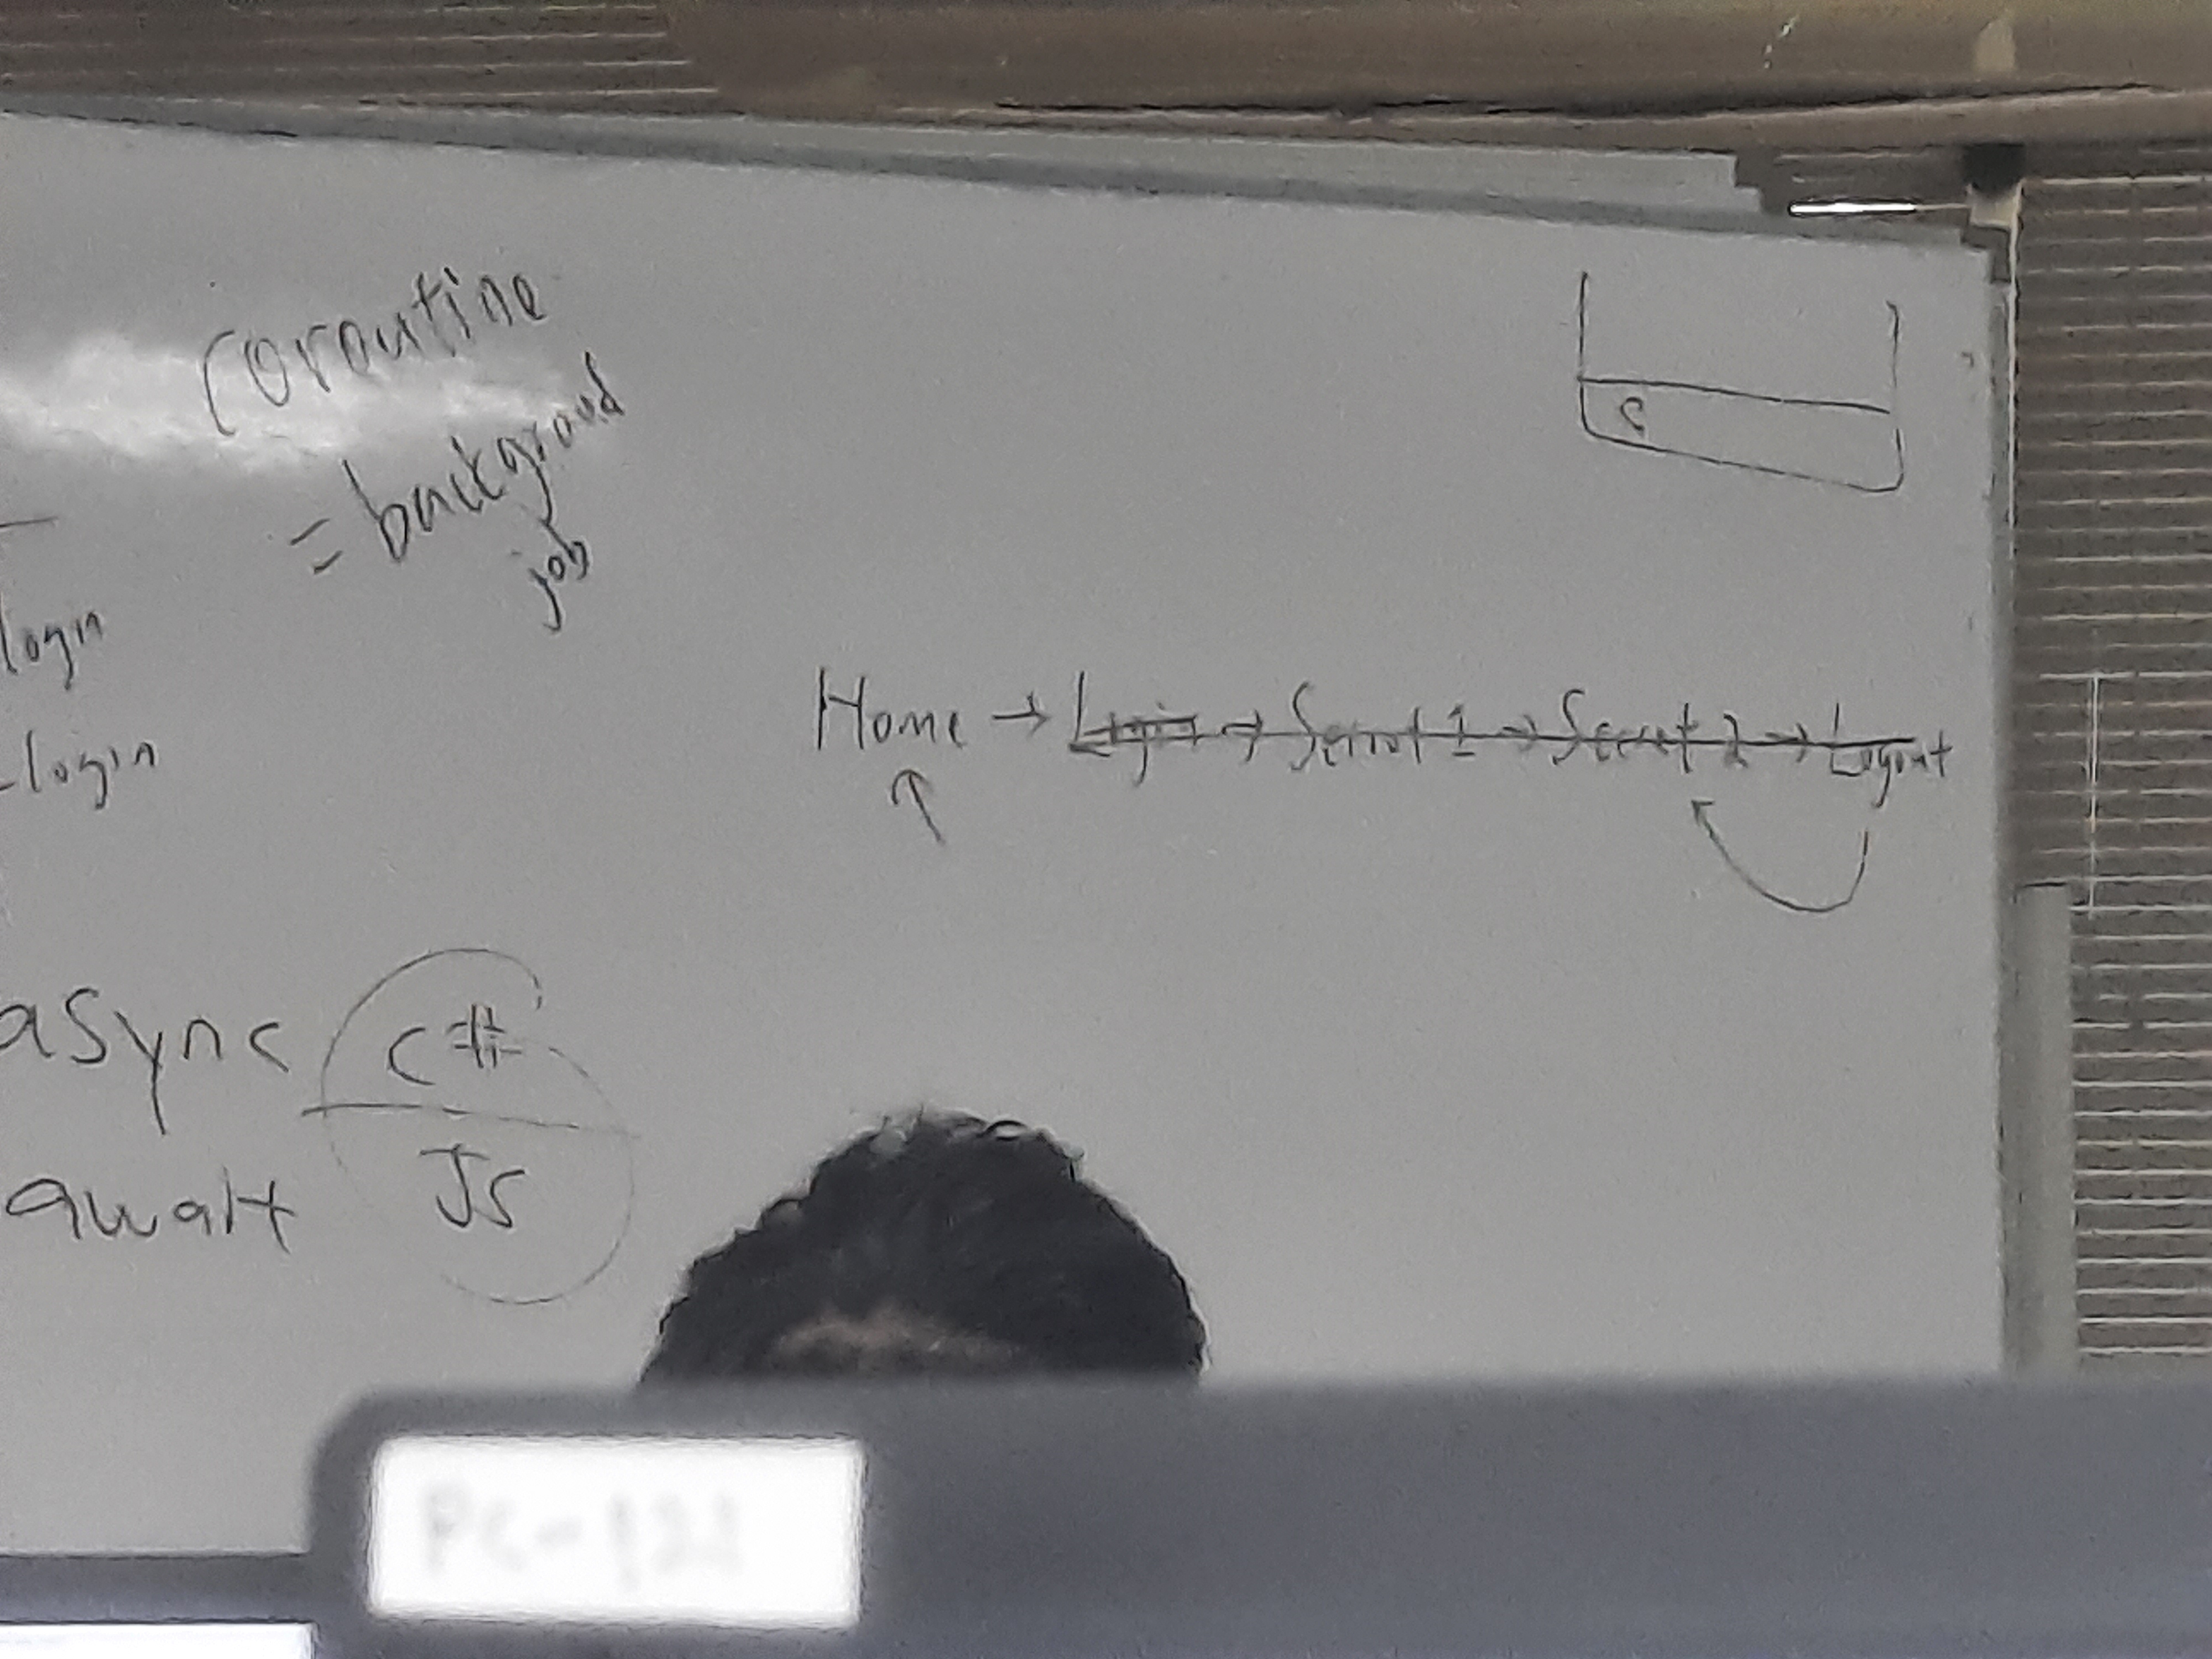 coroutine
= background
job
login
-login
Home → Login → Secret 1 → Secret 2 → Logout
async
C#
await
JS